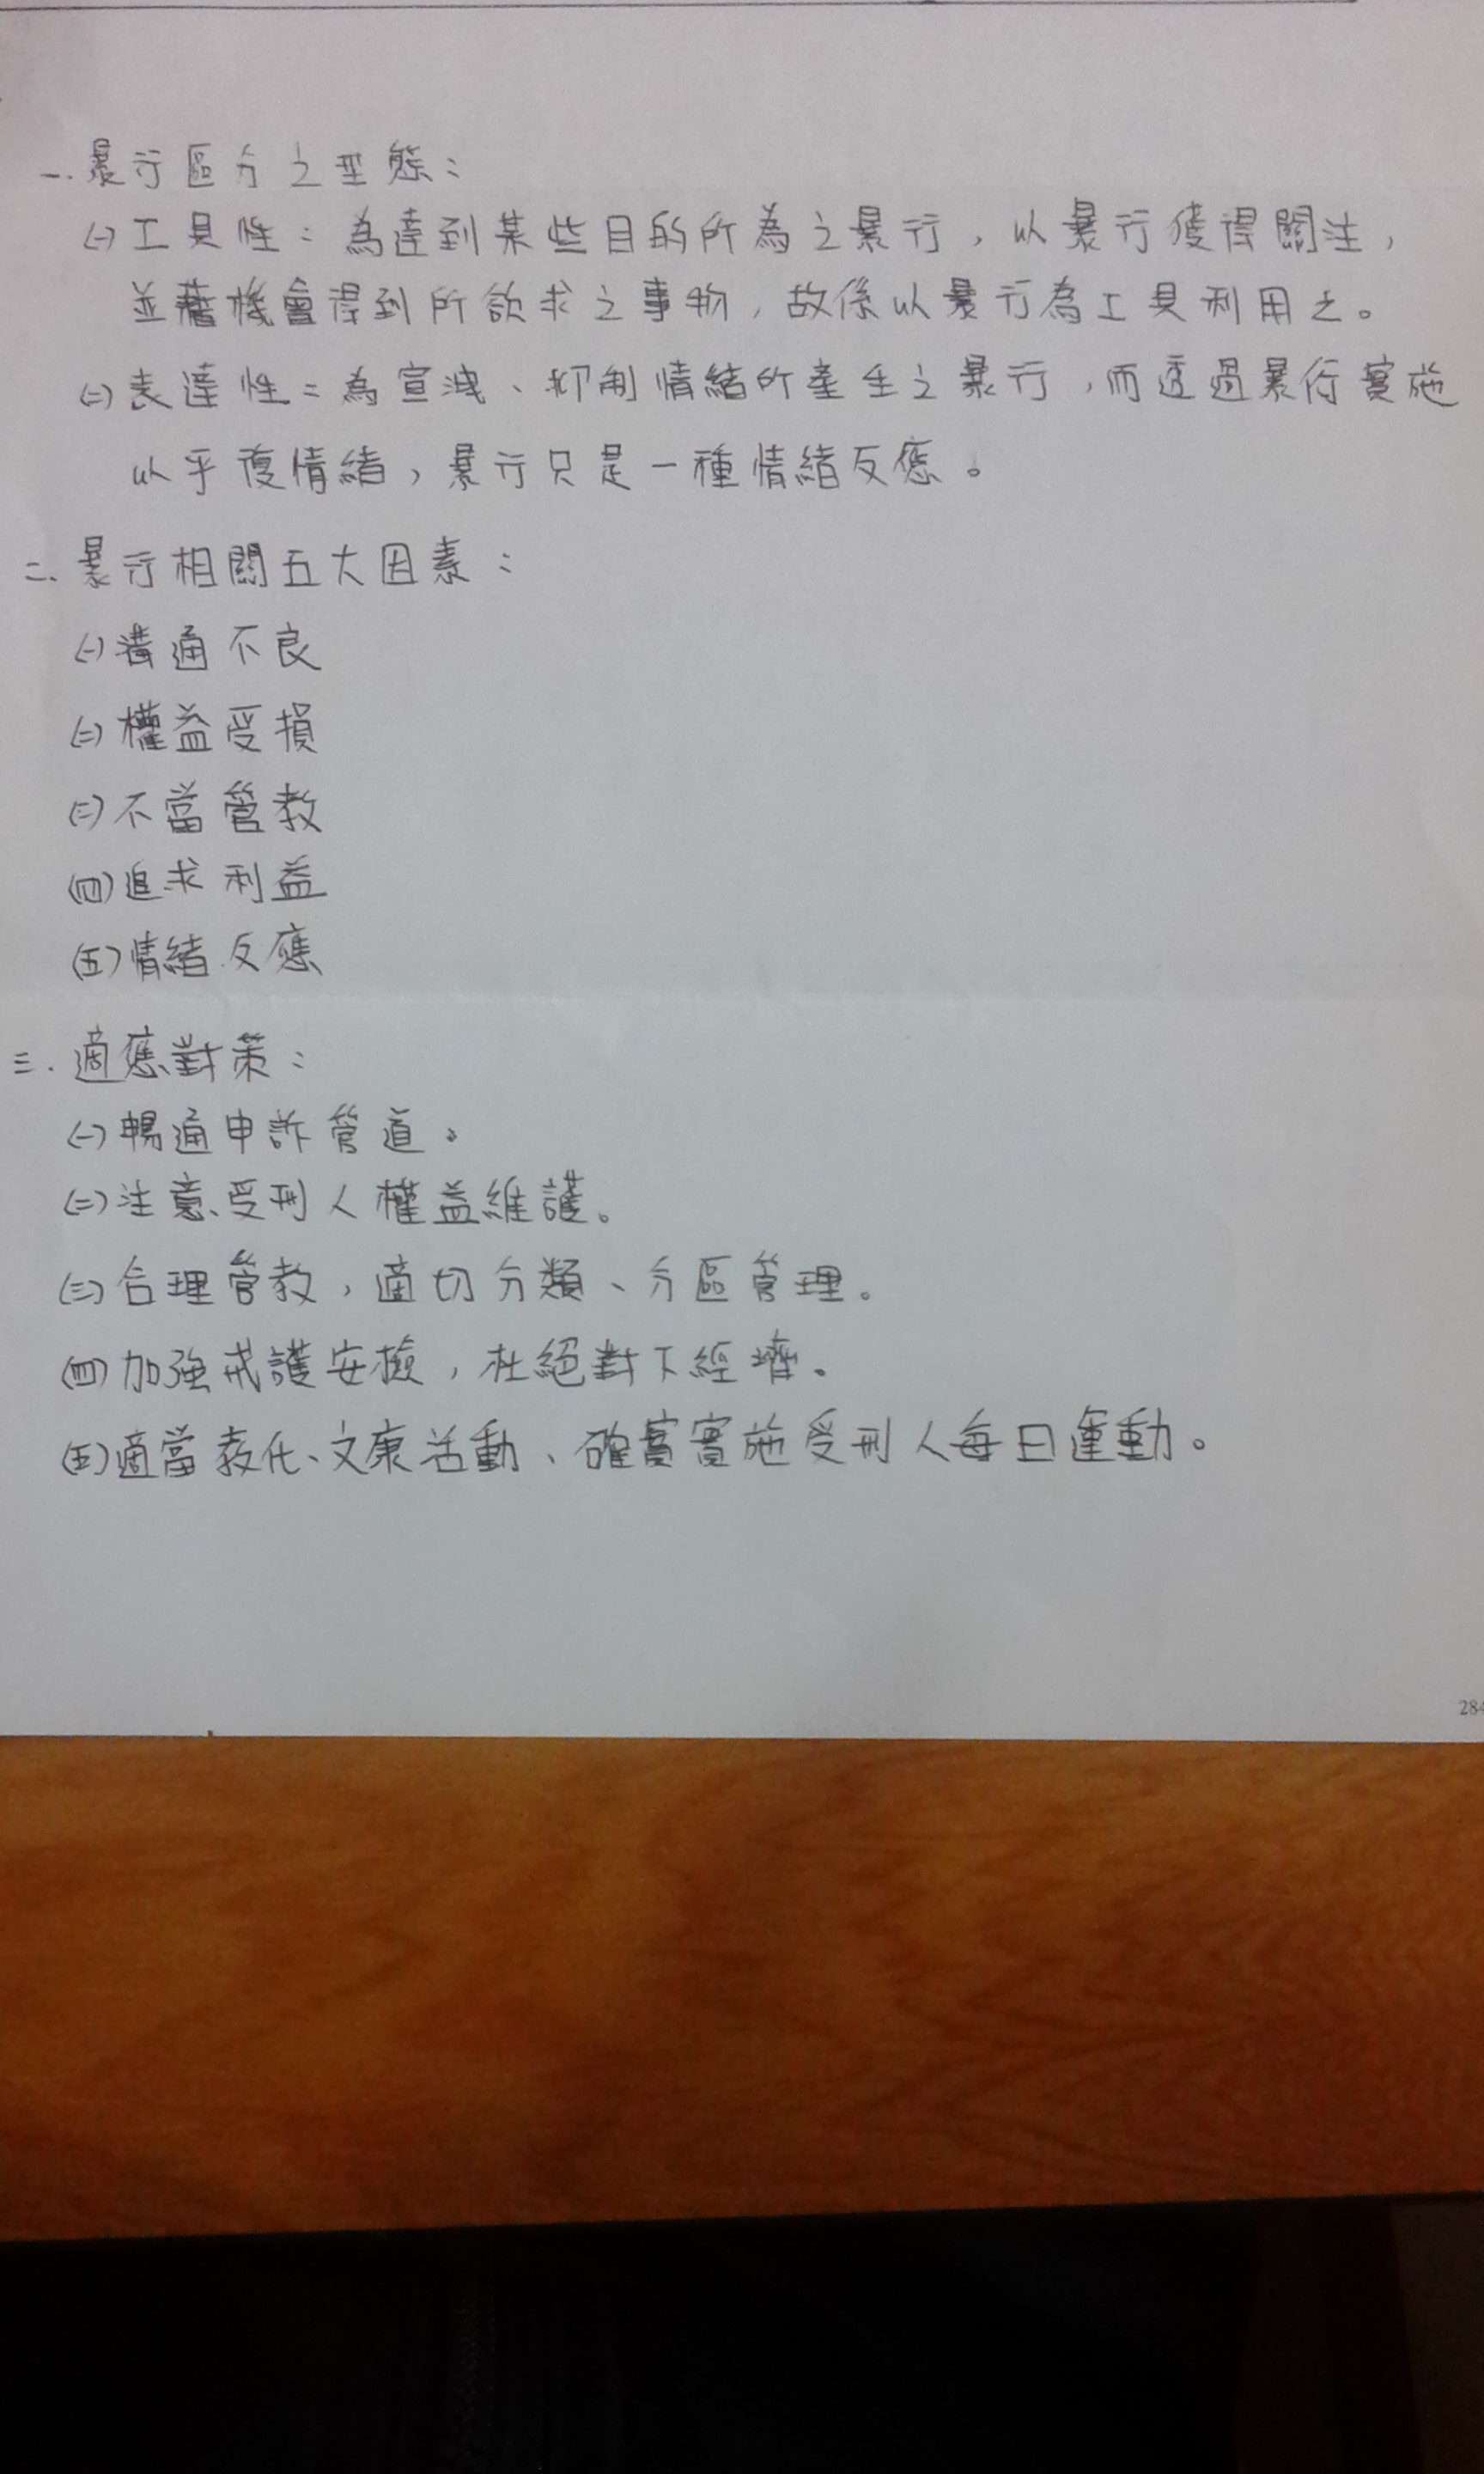 一.暴行區分之型態：
(一)工具性：為達到某些目的所為之暴行，以暴行獲得關注，
並藉機會得到所欲求之事物，故係以暴行為工具利用之。
(二)表達性：為宣洩、抑制情緒所產生之暴行，而透過暴行實施
以平復情緒，暴行只是一種情緒反應。
二、暴行相關五大因素：
(一)溝通不良
(二)權益受損
(三)不當管教
(四)追求利益
(五)情緒反應
三.適應對策：
(一)暢通申訴管道。
(二)注意受刑人權益維護。
(三)合理管教，適切分類、分區管理。
(四)加強戒護安檢，杜絕對下經濟。
(五)適當教化、文康活動、確實實施受刑人每日運動。
284